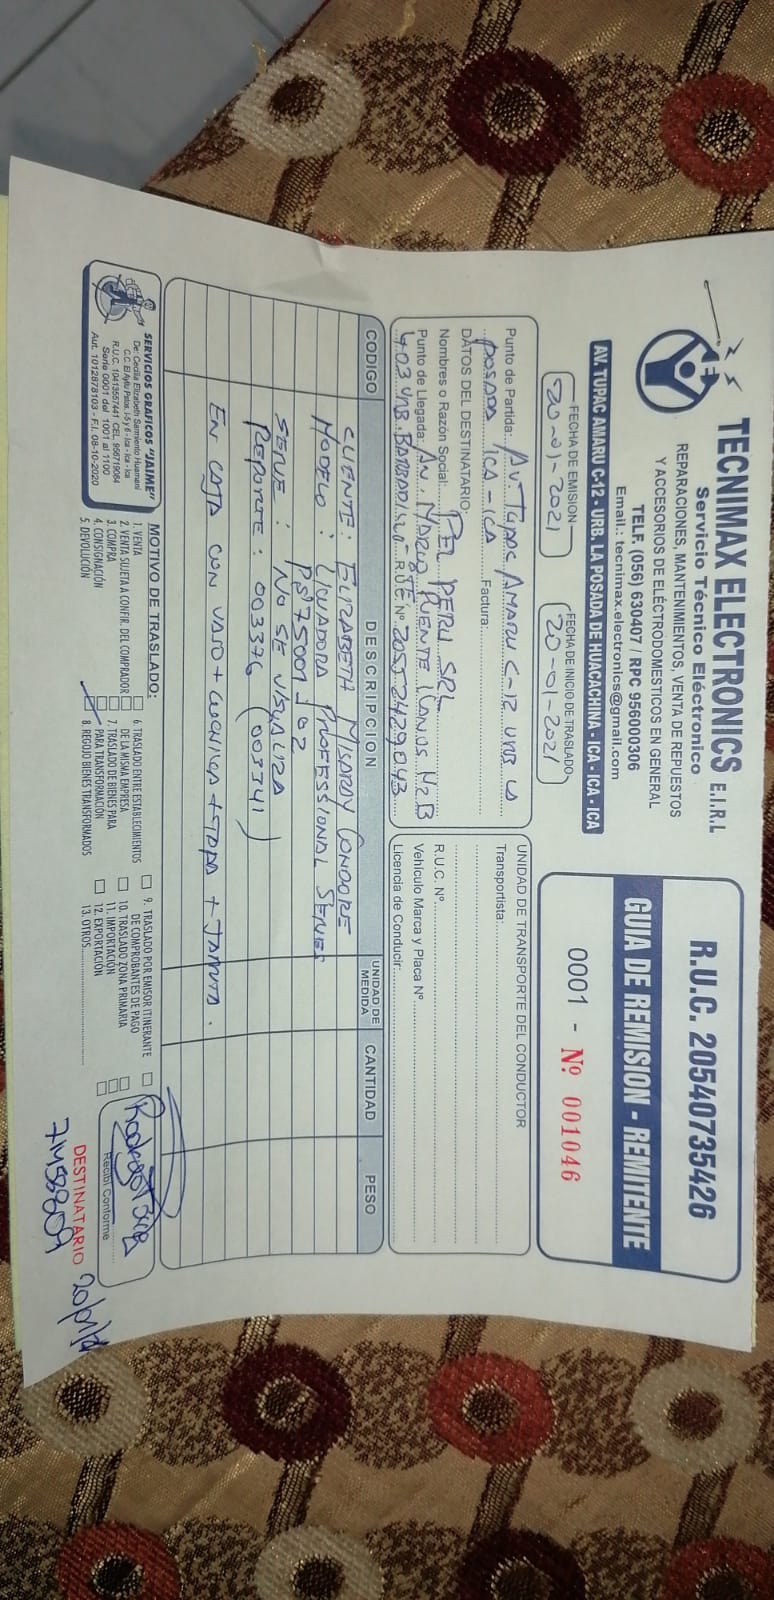 TECNIMAX ELECTRONICS E.I.R.L
Servicio Técnico Eléctronico
REPARACIONES, MANTENIMIENTOS, VENTA DE REPUESTOS
Y ACCESORIOS DE ELÉCTRODOMESTICOS EN GENERAL
TELF. (056) 630407 / RPC 956000306
Email.: tecnimax.electronics@gmail.com
AV. TUPAC AMARU C-12 - URB. LA POSADA DE HUACACHINA - ICA - ICA - ICA
R.U.C. 20540735426
GUIA DE REMISION - REMITENTE
0001 - Nº 001046
FECHA DE EMISION
20-01-2021
FECHA DE INICIO DE TRASLADO
20-01-2021
Punto de Partida: AV. TUPAC AMARU C-12 URB LA
POSADA ICA-ICA Factura:
DATOS DEL DESTINATARIO:
Nombres o Razón Social: PEL PERU SRL
Punto de Llegada: AN. MARIO PUENTE LLANOS MZ B
403 URB. BARBADISLO R.U.C Nº 20552429043
UNIDAD DE TRANSPORTE DEL CONDUCTOR
Transportista:
R.U.C. Nº
Vehículo Marca y Placa Nº
Licencia de Conducir:
CODIGO DESCRIPCION UNIDAD DE MEDIDA CANTIDAD PESO
CLIENTE: ELIZABETH CONDORE
MODELO: LICUADORA PROFESSIONAL SERIES
SERIE: NO SE VISUALIZA
REPORTE: 003376 (003341)
EN CAJA CON VASO + CUCHILLA + TAPA +
SERVICIOS GRAFICOS "JAIME"
De: Cecilia Elizabeth Sarmiento Huamani
C.C. El Ayllu Patos. I-5 y 6 - Ica - Ica - Ica
R.U.C. 10413557441 CEL. 956719084
Serie 0001 del 1001 al 1100
Aut. 1012878103 - F.I. 08-10-2020
MOTIVO DE TRASLADO:
1. VENTA
2. VENTA SUJETA A CONFIR. DEL COMPRADOR
3. COMPRA
4. CONSIGNACIÓN
5. DEVOLUCIÓN
6. TRASLADO ENTRE ESTABLECIMIENTOS
DE LA MISMA EMPRESA
7. TRASLADO DE BIENES PARA
PARA TRANSFORMACIÓN
8. RECOJO BIENES TRANSFORMADOS
9. TRASLADO POR EMISOR ITINERANTE
DE COMPROBANTES DE PAGO
10. TRASLADO ZONA PRIMARIA
11. IMPORTACIÓN
12. EXPORTACIÓN
13. OTROS
Recibi Conforme
DESTINATARIO